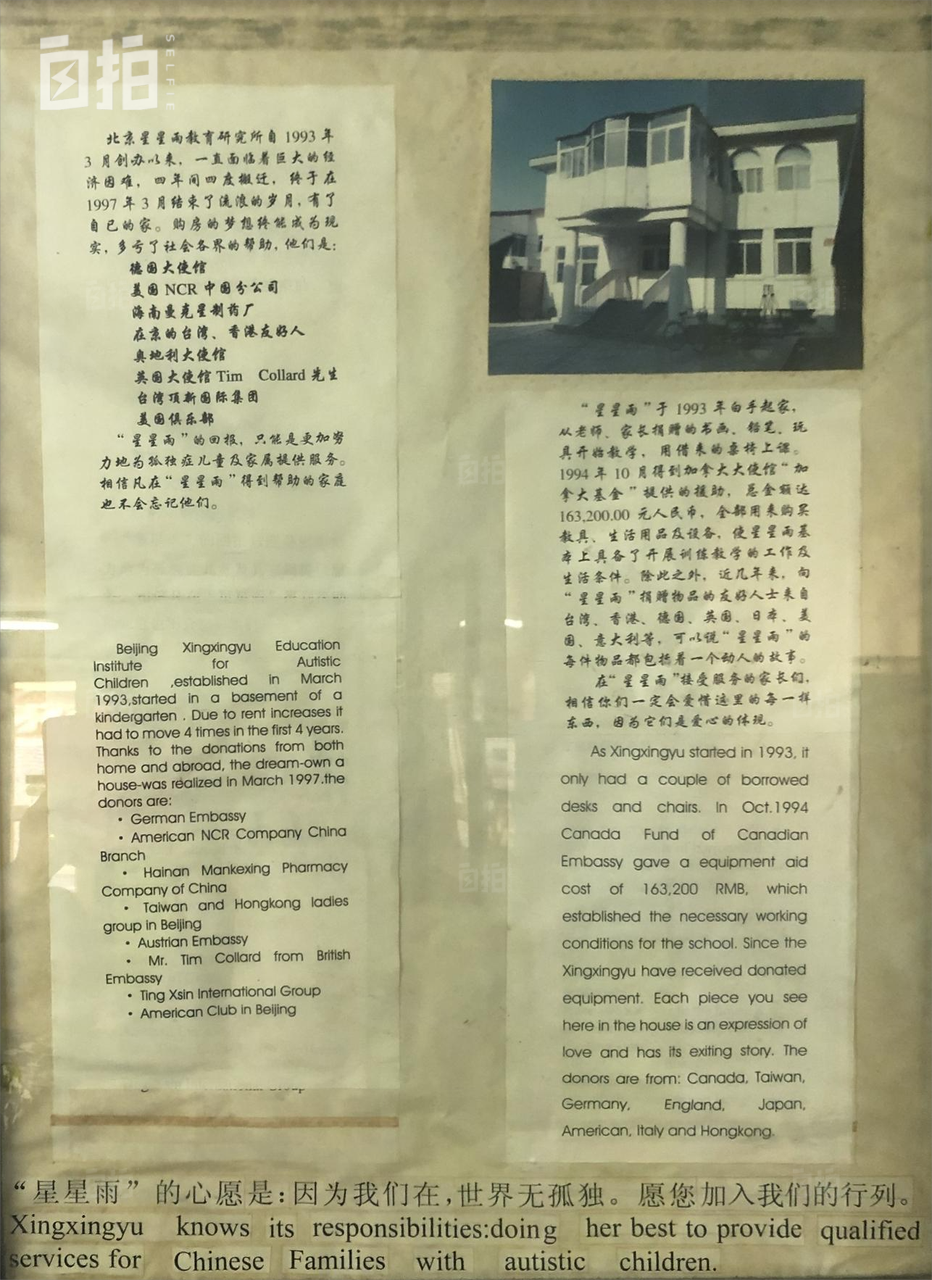 自拍
SELFIE
北京星星雨教育研究所自 1993 年
3 月创办以来，一直面临着巨大的经
济困难，四年间四度搬迁，终于在
1997 年 3 月结束了流浪的岁月，有了
自己的家。购房的梦想终能成为现
实，多亏了社会各界的帮助，他们是：
德国大使馆
美国 NCR 中国分公司
海南曼克星制药厂
在京的台湾、香港友好人
奥地利大使馆
英国大使馆 Tim Collard 先生
台湾顶新国际集团
美国俱乐部
“星星雨”的回报，只能是更加努
力地为孤独症儿童及家属提供服务。
相信凡在“星星雨”得到帮助的家庭
也不会忘记他们。
Beijing Xingxingyu Education
Institute for Autistic
Children ,established in March
1993,started in a basement of a
kindergarten . Due to rent increases it
had to move 4 times in the first 4 years.
Thanks to the donations from both
home and abroad, the dream-own a
house-was realized in March 1997.the
donors are:
• German Embassy
• American NCR Company China
Branch
• Hainan Mankexing Pharmacy
Company of China
• Taiwan and Hongkong ladies
group in Beijing
• Austrian Embassy
• Mr. Tim Collard from British
Embassy
• Ting Xsin International Group
• American Club in Beijing
“星星雨”于 1993 年白手起家，
从老师、家长捐赠的书画、铅笔、玩
具开始教学，用借来的桌椅上课。
1994 年 10 月得到加拿大大使馆“加
拿大基金”提供的援助，总金额达
163,200.00 元人民币，全部用来购买
教具、生活用品及设备，使星星雨基
本上具备了开展训练教学的工作及
生活条件。除此之外，近几年来，向
“星星雨”捐赠物品的友好人士来自
台湾、香港、德国、英国、日本、美
国、意大利等，可以说“星星雨”的
每件物品都包括着一个动人的故事。
在“星星雨”接受服务的家长们，
相信你们一定会爱惜这里的每一样
东西，因为它们是爱心的体现。
As Xingxingyu started in 1993, it
only had a couple of borrowed
desks and chairs. In Oct.1994
Canada Fund of Canadian
Embassy gave a equipment aid
cost of 163,200 RMB, which
established the necessary working
conditions for the school. Since the
Xingxingyu have received donated
equipment. Each piece you see
here in the house is an expression of
love and has its exiting story. The
donors are from: Canada, Taiwan,
Germany, England, Japan,
American, Italy and Hongkong.
“星星雨”的心愿是：因为我们在，世界无孤独。愿您加入我们的行列。
Xingxingyu knows its responsibilities:doing her best to provide qualified
services for Chinese Families with autistic children.